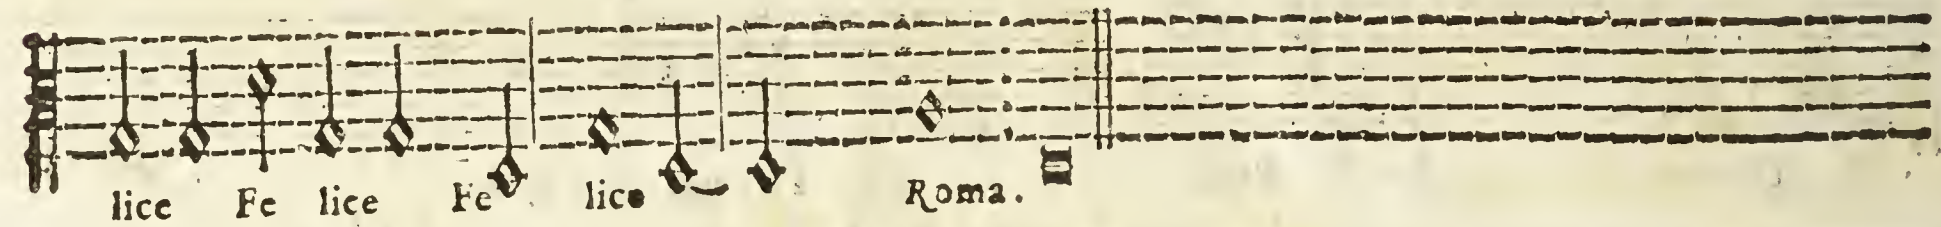 lice Fe lice Fe lice Roma.